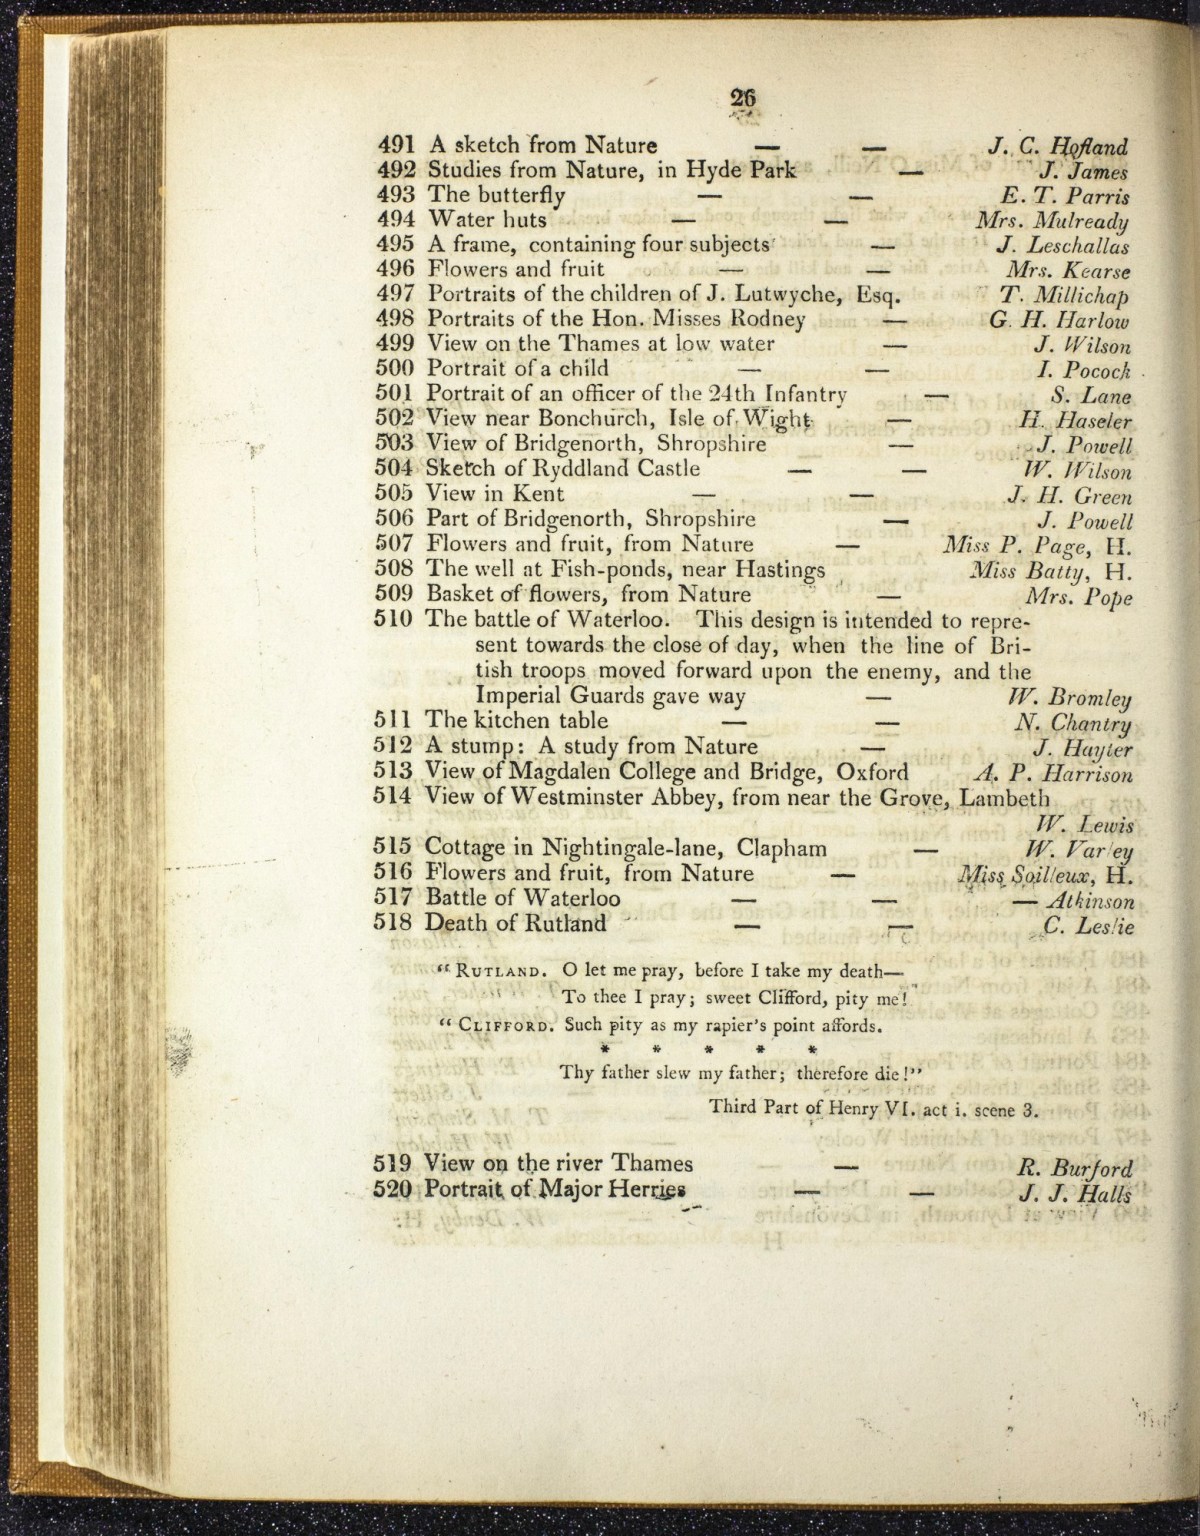 26
491 A sketch from Nature — — J. C. Hofland
492 Studies from Nature, in Hyde Park — J. James
493 The butterfly — — E. T. Parris
494 Water huts — — Mrs. Mulready
495 A frame, containing four subjects — J. Leschallas
496 Flowers and fruit — — Mrs. Kearse
497 Portraits of the children of J. Lutwyche, Esq. T. Millichap
498 Portraits of the Hon. Misses Rodney — G. H. Harlow
499 View on the Thames at low water — J. Wilson
500 Portrait of a child — — I. Pocock
501 Portrait of an officer of the 24th Infantry — S. Lane
502 View near Bonchurch, Isle of Wight — H. Haseler
503 View of Bridgenorth, Shropshire — J. Powell
504 Sketch of Ryddland Castle — — W. Wilson
505 View in Kent — — J. H. Green
506 Part of Bridgenorth, Shropshire — J. Powell
507 Flowers and fruit, from Nature — Miss P. Page, H.
508 The well at Fish-ponds, near Hastings Miss Batty, H.
509 Basket of flowers, from Nature — Mrs. Pope
510 The battle of Waterloo. This design is intended to repre-
sent towards the close of day, when the line of Bri-
tish troops moved forward upon the enemy, and the
Imperial Guards gave way — W. Bromley
511 The kitchen table — — N. Chantry
512 A stump: A study from Nature — J. Hayter
513 View of Magdalen College and Bridge, Oxford A. P. Harrison
514 View of Westminster Abbey, from near the Grove, Lambeth
W. Lewis
515 Cottage in Nightingale-lane, Clapham — W. Varley
516 Flowers and fruit, from Nature — Miss Soilleux, H.
517 Battle of Waterloo — — — Atkinson
518 Death of Rutland — — C. Leslie
“ RUTLAND. O let me pray, before I take my death—
To thee I pray; sweet Clifford, pity me!
“ CLIFFORD. Such pity as my rapier's point affords.
* * * * *
Thy father slew my father; therefore die!”
Third Part of Henry VI. act i. scene 3.
519 View on the river Thames — R. Burford
520 Portrait of Major Herries — — J. J. Halls